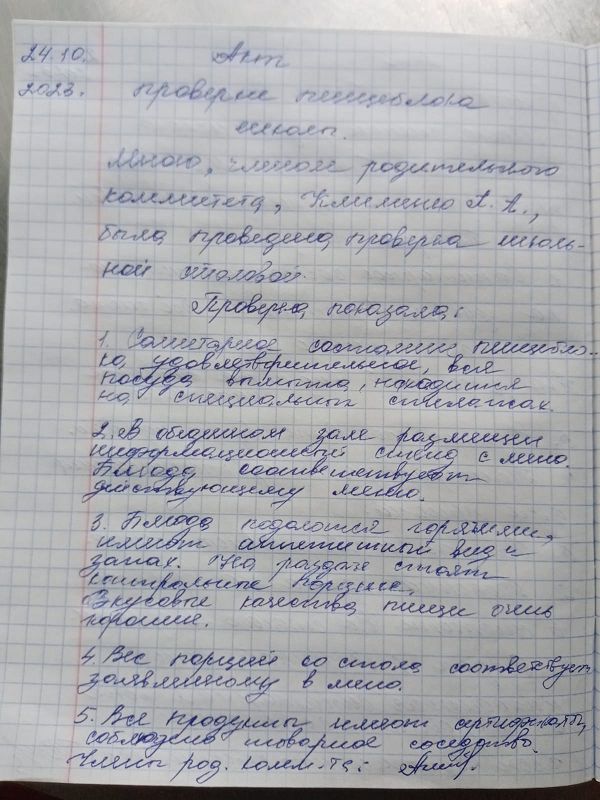 24.10. Акт
2023. проверке пищеблока
школы.
Мною, членом родительского
коммитета, Клименко А. А.,
была проведена проверка школь-
ной столовой.
Проверка показала:
1. Санитарное состояние пищебло-
ка, удовлетворительное, вся
посуда вымыта, находится
на специальных стеллажах.
2. В обеденном зале размещен
информационный стенд с меню.
Блюда соответствует
действующему меню.
3. Блюда подаются горячими,
имеют аппетитный вид и
запах. На раздаче стоят
контрольные порции.
Вкусовые качества пищи очень
хорошие.
4. Вес порций со стола соответствует
заявленному в меню.
5. Все продукты имеют
соблюдено товарное соседство.
Члены род. комм-та: